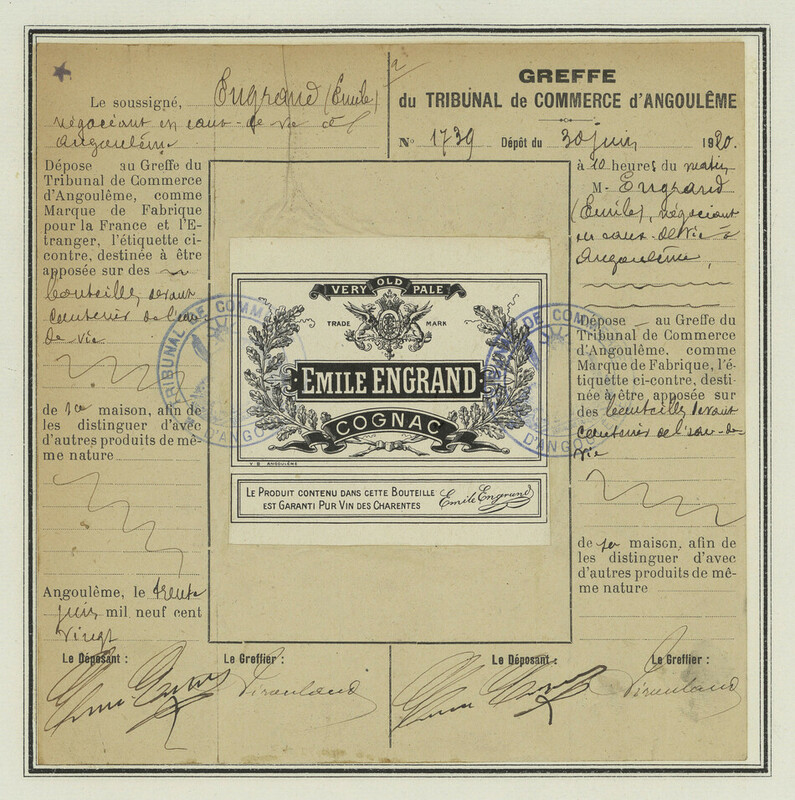 Le soussigné, Engrand (Emile)
négociant en eaux-de-vie à
Angoulême
Dépose au Greffe du
Tribunal de Commerce
d'Angoulême, comme
Marque de Fabrique
pour la France et l'E-
tranger, l'étiquette ci-
contre, destinée à être
apposée sur des
bouteilles devant
contenir de l'eau
de vie
de sa maison, afin de
les distinguer d'avec
d'autres produits de mê-
me nature
Angoulême, le trente
juin mil neuf cent
vingt
Le Déposant :
Le Greffier :
GREFFE
du TRIBUNAL de COMMERCE d'ANGOULÊME
N° 1739 Dépôt du 30 juin 1920.
à 10 heures du matin
M. Engrand
(Emile), négociant
en eaux-de-vie à
Angoulême,
Dépose au Greffe du
Tribunal de Commerce
d'Angoulême, comme
Marque de Fabrique, l'é-
tiquette ci-contre, desti-
née à être, apposée sur
des bouteilles devant
contenir de l'eau-de-
vie
de sa maison, afin de
les distinguer d'avec
d'autres produits de mê-
me nature
Le Déposant :
Le Greffier :
VERY OLD PALE
TRADE MARK
EMILE ENGRAND
COGNAC
V. B. ANGOULÊME
LE PRODUIT CONTENU DANS CETTE BOUTEILLE
EST GARANTI PUR VIN DES CHARENTES
Emile Engrand
TRIBUNAL DE COMM
D'ANGO
DE COM
D'ANGO